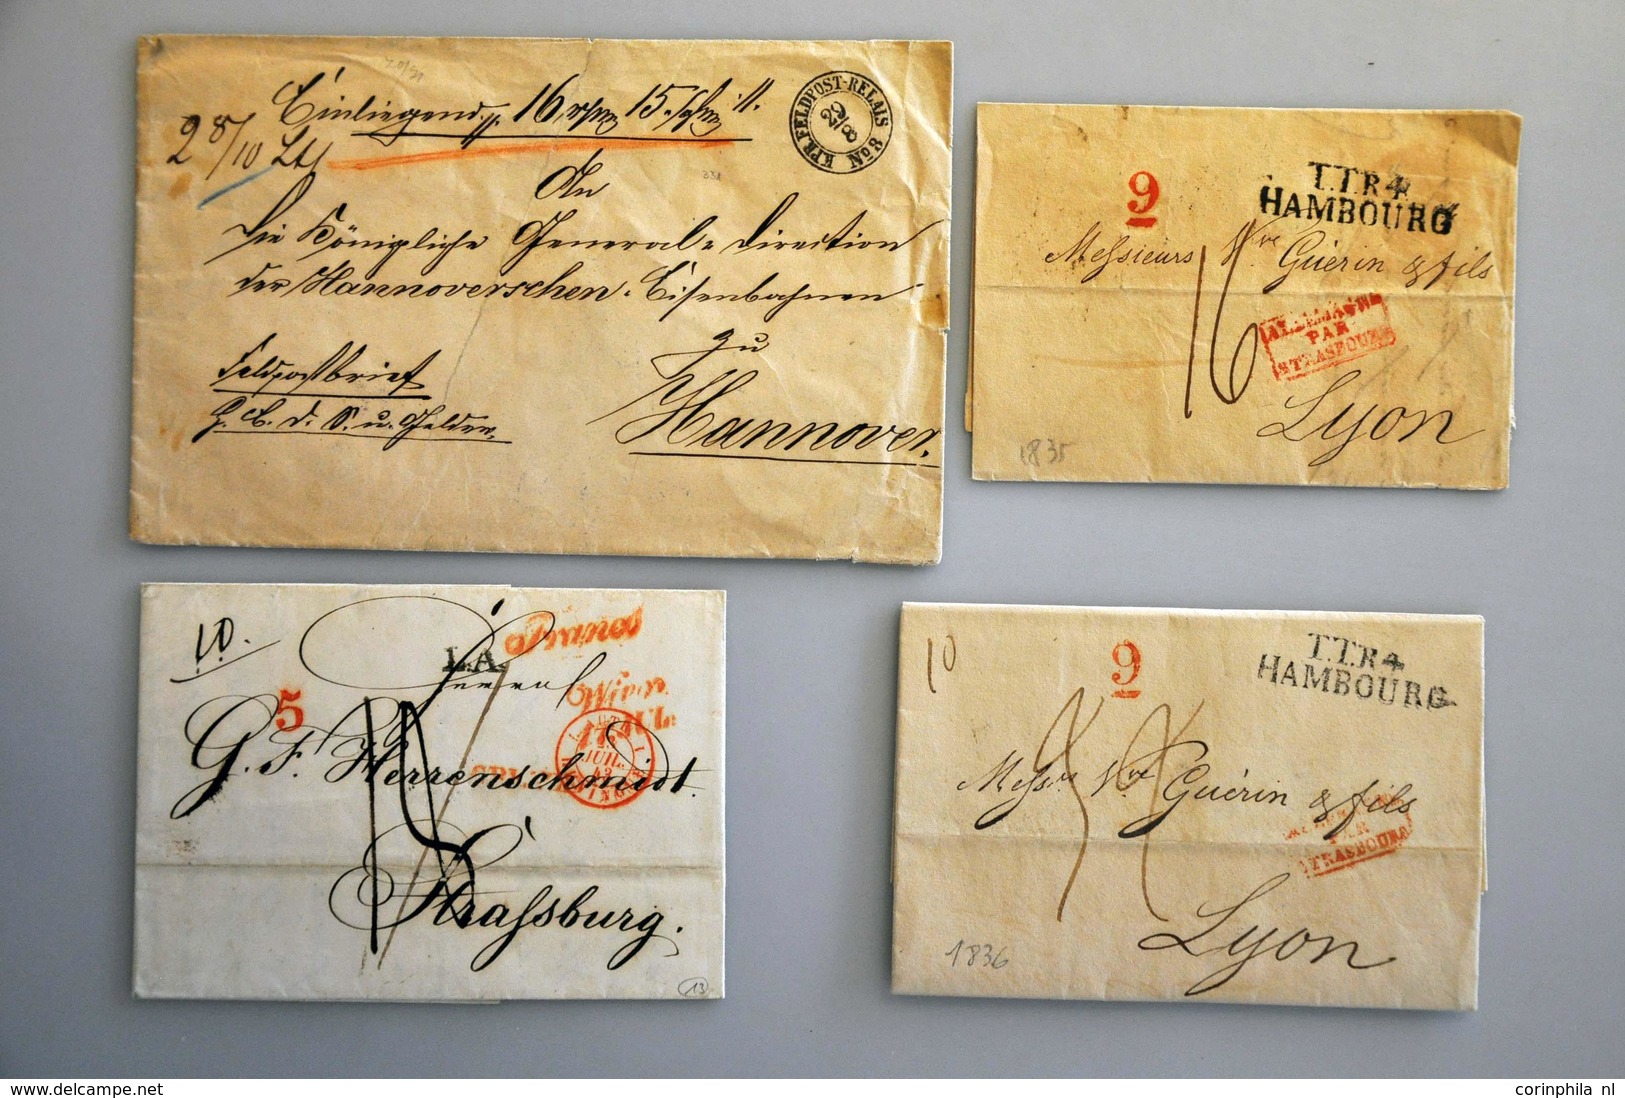 Einliegend 16 15
2 8/10 Lth
K.PR.FELDPOST-RELAIS No 8
29/8
An
Die Königliche General-Direction
der Hannoverschen Eisenbahnen
zu
Hannover.
Feldpostbrief
331
9
T.T.R.4
HAMBOURG
Messieurs Vve Guérin & fils
16
ALLEMAGNE
PAR
STRASBOURG
Lyon
1835
10.
L.A.
Franco
5
Wien
JUIL.
G. F. Herrenschmidt.
Strassburg.
13
10
9
T.T.R.4
HAMBOURG
Messrs Vve Guérin & fils
PAR
STRASBOURG
Lyon
1836
www.delcampe.net
corinphila nl